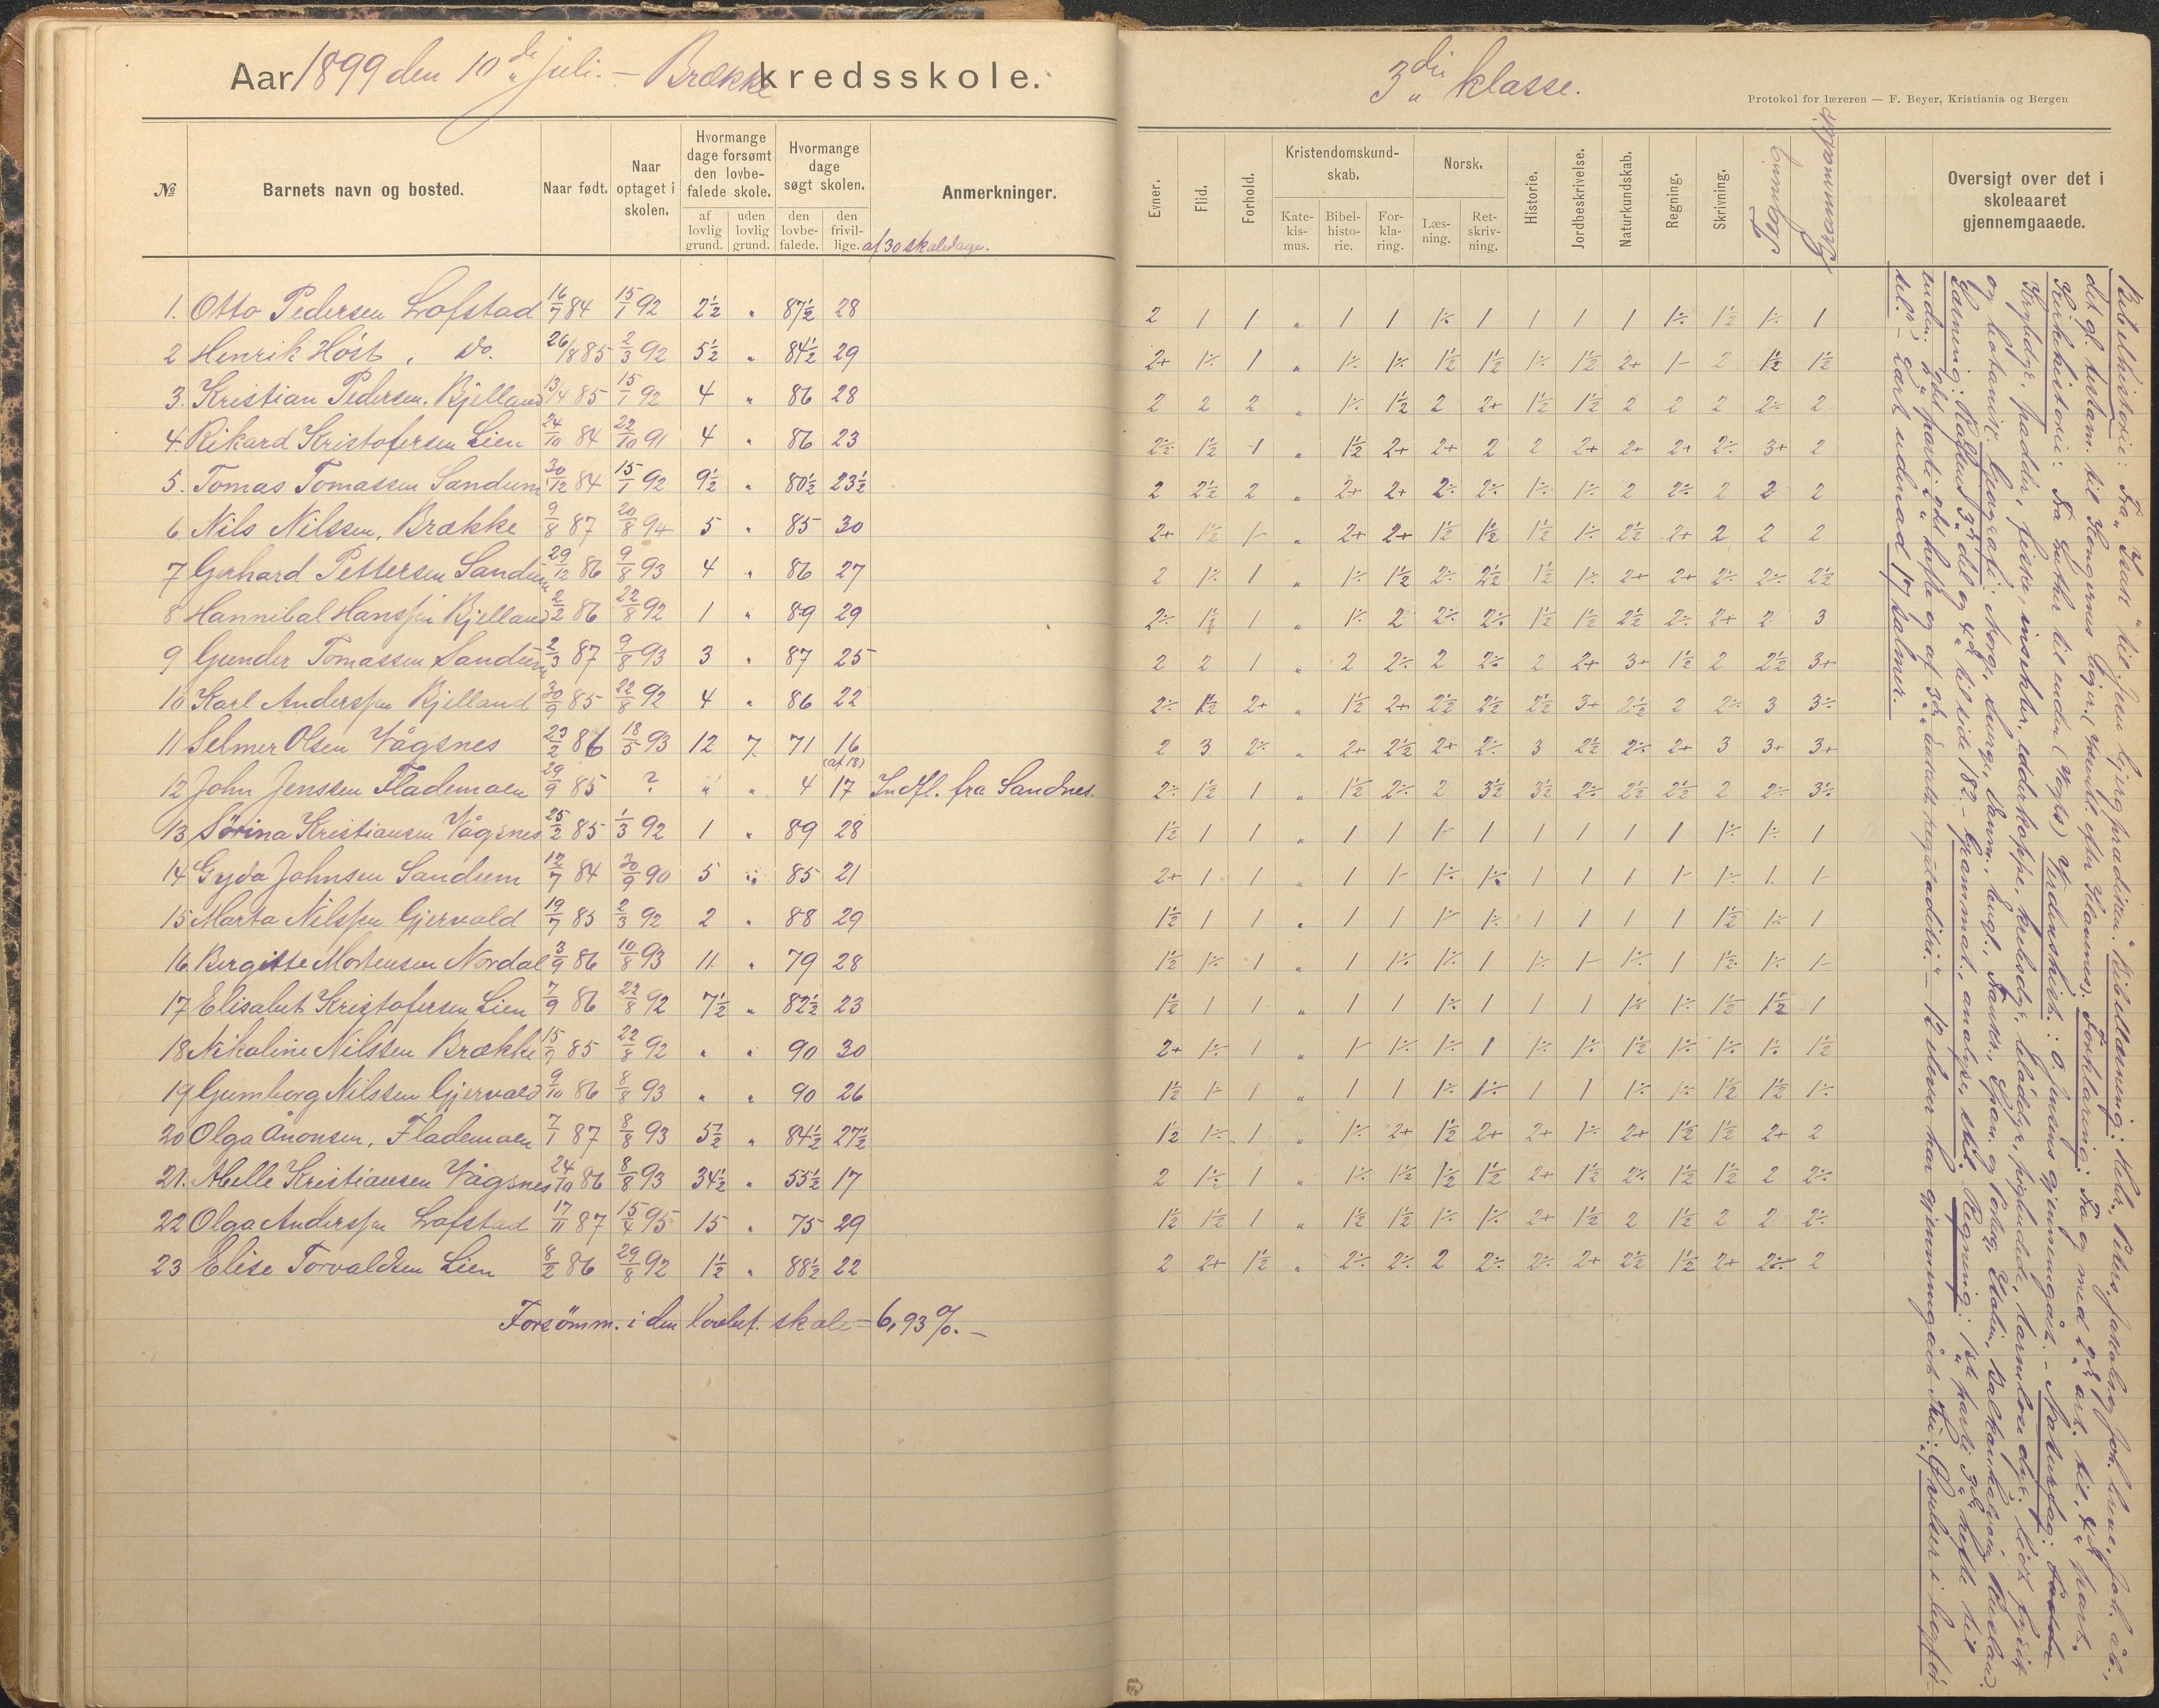 Aar 1899 den 10de juli. — Brække kredsskole.
№ Barnets navn og bosted. Naar født. Naar optaget i skolen. Hvormange dage forsømt den lovbefalede skole. af lovlig grund. uden lovlig grund. Hvormange dage søgt skolen. den lovbefalede. den frivillige. Anmerkninger.
af 30 skoledage.
1. Otto Pedersen Lofstad 16/7 84 15/1 92 2½ „ 87½ 28
2 Henrik Höst, do. 26/8 85 2/3 92 5½ „ 84½ 29
3. Kristian Pedersen. Kjelland 13/4 85 15/1 92 4 „ 86 28
4. Rikard Kristofersen Lien 24/10 84 22/10 91 4 „ 86 23
5. Tomas Tomassen Sandum 30/12 84 15/1 92 9½ „ 80½ 23½
6. Nils Nilssen, Brække 9/8 87 20/8 94 5 „ 85 30
7 Gerhard Pettersen Sandum 29/12 86 9/8 93 4 „ 86 27
8 Hannibal Hanssen Kjelland 2/2 86 22/8 92 1 „ 89 29
9 Gunder Tomassen Sandum 2/3 87 9/8 93 3 „ 87 25
10 Karl Anderssen Kjelland 30/9 85 22/8 92 4 „ 86 22
11 Selmer Olsen Vågsnes 23/2 86 18/5 93 12 7 71 16
(af 18)
12 John Jenssen Flademoen 29/9 85 ? „ „ 4 17 Indfl. fra Sandnes.
13 Sörina Kristiansen Vågsnes 25/2 85 1/3 92 1 „ 89 28
14 Gyda Johnsen Sandum 12/7 84 30/9 90 5 „ 85 21
15 Marta Nilssen Gjervold 19/7 85 2/3 92 2 „ 88 29
16 Bergitte Mortensen Nordal 3/9 86 10/8 93 11. „ 79 28
17 Elisabet Kristofersen Lien 7/9 86 22/8 92 7½ „ 82½ 23
18 Nikoline Nilssen Brække 15/9 85 22/8 92 „ „ 90 30
19 Gumborg Nilssen Gjervold 9/10 86 8/8 93 „ „ 90 26
20 Olga Ånonsen, Flademoen 7/1 87 8/8 93 5½ „ 84½ 27½
21. Abelle Kristiansen Vågsnes 24/10 86 8/8 93 34½ „ 55½ 17
22 Olga Anderssen Lofstad 17/11 87 15/4 95 15 „ 75 29
23 Elise Torvaldsen Lien 8/2 86 29/8 92 1½ „ 88½ 22
Forsömm. i den lovbef. skole = 6,93 %. —
3die klasse.
Protokol for læreren — F. Beyer, Kristiania og Bergen
Evner. Flid. Forhold. Kristendomskundskab. Katekismus. Bibelhistorie. Forklaring. Norsk. Læsning. Retskrivning. Historie. Jordbeskrivelse. Naturkundskab. Regning. Skrivning. Tegning Grammatik Oversigt over det i skoleaaret gjennemgaaede.
2 1 1 „ 1 1 1÷ 1 1 1 1 1÷ 1½ 1÷ 1
2+ 1÷ 1 „ 1÷ 1÷ 1½ 1½ 1÷ 1½ 2+ 1- 2 1½ 1½
2 2 2 „ 1÷ 1½ 2 2+ 1½ 1½ 2 2 2 2÷ 2
2÷ 1½ 1 „ 1½ 2+ 2+ 2 2 2+ 2+ 2+ 2÷ 3+ 2
2 2½ 2 „ 2+ 2+ 2÷ 2÷ 1÷ 1÷ 2 2÷ 2 2 2
2+ 1½ 1- „ 2+ 2+ 1½ 1½ 1½ 1÷ 2½ 2+ 2 2 2
2 1÷ 1 „ 1÷ 1½ 2÷ 2½ 1½ 1÷ 2+ 2+ 2÷ 2÷ 2½
2÷ 1½ 1 „ 1÷ 2 2÷ 2÷ 1½ 1½ 2½ 2÷ 2+ 2 3
2 2 1 „ 2 2÷ 2 2÷ 2 2+ 3+ 1½ 2 2½ 3+
2÷ 1½ 2+ „ 1½ 2+ 2½ 2½ 2½ 3+ 2½ 2 2÷ 3 3÷
2 3 2÷ „ 2+ 2½ 2+ 2÷ 3 2½ 2÷ 2+ 3 3+ 3+
2÷ 1½ 1 „ 1½ 2÷ 2 3½ 3½ 2÷ 2½ 2½ 2 2÷ 3÷
1½ 1 1 „ 1 1 1- 1 1 1 1 1 1÷ 1÷ 1
2+ 1 1 „ 1 1- 1÷ 1÷ 1 1 1 1- 1÷ 1. 1-
1½ 1 1 „ 1 1 1- 1÷ 1 1 1 1 1½ 1÷ 1
1½ 1÷ 1 „ 1 1÷ 1÷ 1 1÷ 1- 1÷ 1 1½ 1÷ 1-
1½ 1 1 „ 1 1 1÷ 1 1 1 1÷ 1÷ 1½ 1½ 1
2+ 1÷ 1 „ 1- 1÷ 1÷ 1 1÷ 1÷ 1½ 1÷ 1÷ 1÷ 1½
1½ 1- 1 „ 1 1 1÷ 1÷ 1 1 1÷ 1÷ 1½ 1½ 1÷
1½ 1÷ 1 „ 1÷ 2+ 1½ 2+ 2+ 1÷ 2+ 1½ 1½ 2+ 2
2 1½ 1 „ 1÷ 1½ 1½ 1½ 2+ 1½ 2÷ 1½ 1½ 2 2÷
1½ 1½ 1 „ 1½ 1½ 1÷ 1÷ 2+ 1½ 2 1½ 2 2 2÷
2 2+ 1½ „ 2÷ 2÷ 2 2÷ 2÷ 2+ 2½ 1½ 2+ 2÷ 2
Bibelhistorie: Fra „Isak" til „Jesu bjergprædiken." Bibellæsning: Hebr., Peters, Jakobs og Joh. breve, Joh. åb.,
det gl. testam. til Kongernes bøger. (Utvalg efter Klavenes). Forklaring: Fra og med 2den art. til 4de part.
Kirkehistorie: Fra Luther til enden (Vogts) Verdenshist.: O. Jensens gjennemgåt. — Naturfag:
Krybdyr, padder, fiske, insekter, edderkoppe, krebsdyr, bløddyr, pighude,
og botanik. Geografi: Norge, Sverige, Danm., Engl., Frankr., Span. og Portug., Italien, Balkanhalvøen, Rusland.
Læsning: Rolfsens 3dje del og 4de til side 182. — Grammat., analyse, Regning: 1ste parti 3dje hefte til
enden. 2det parti 2det hefte og af 3dje 12 elever har gjennemgået
— Lært udenad 17 salmer.